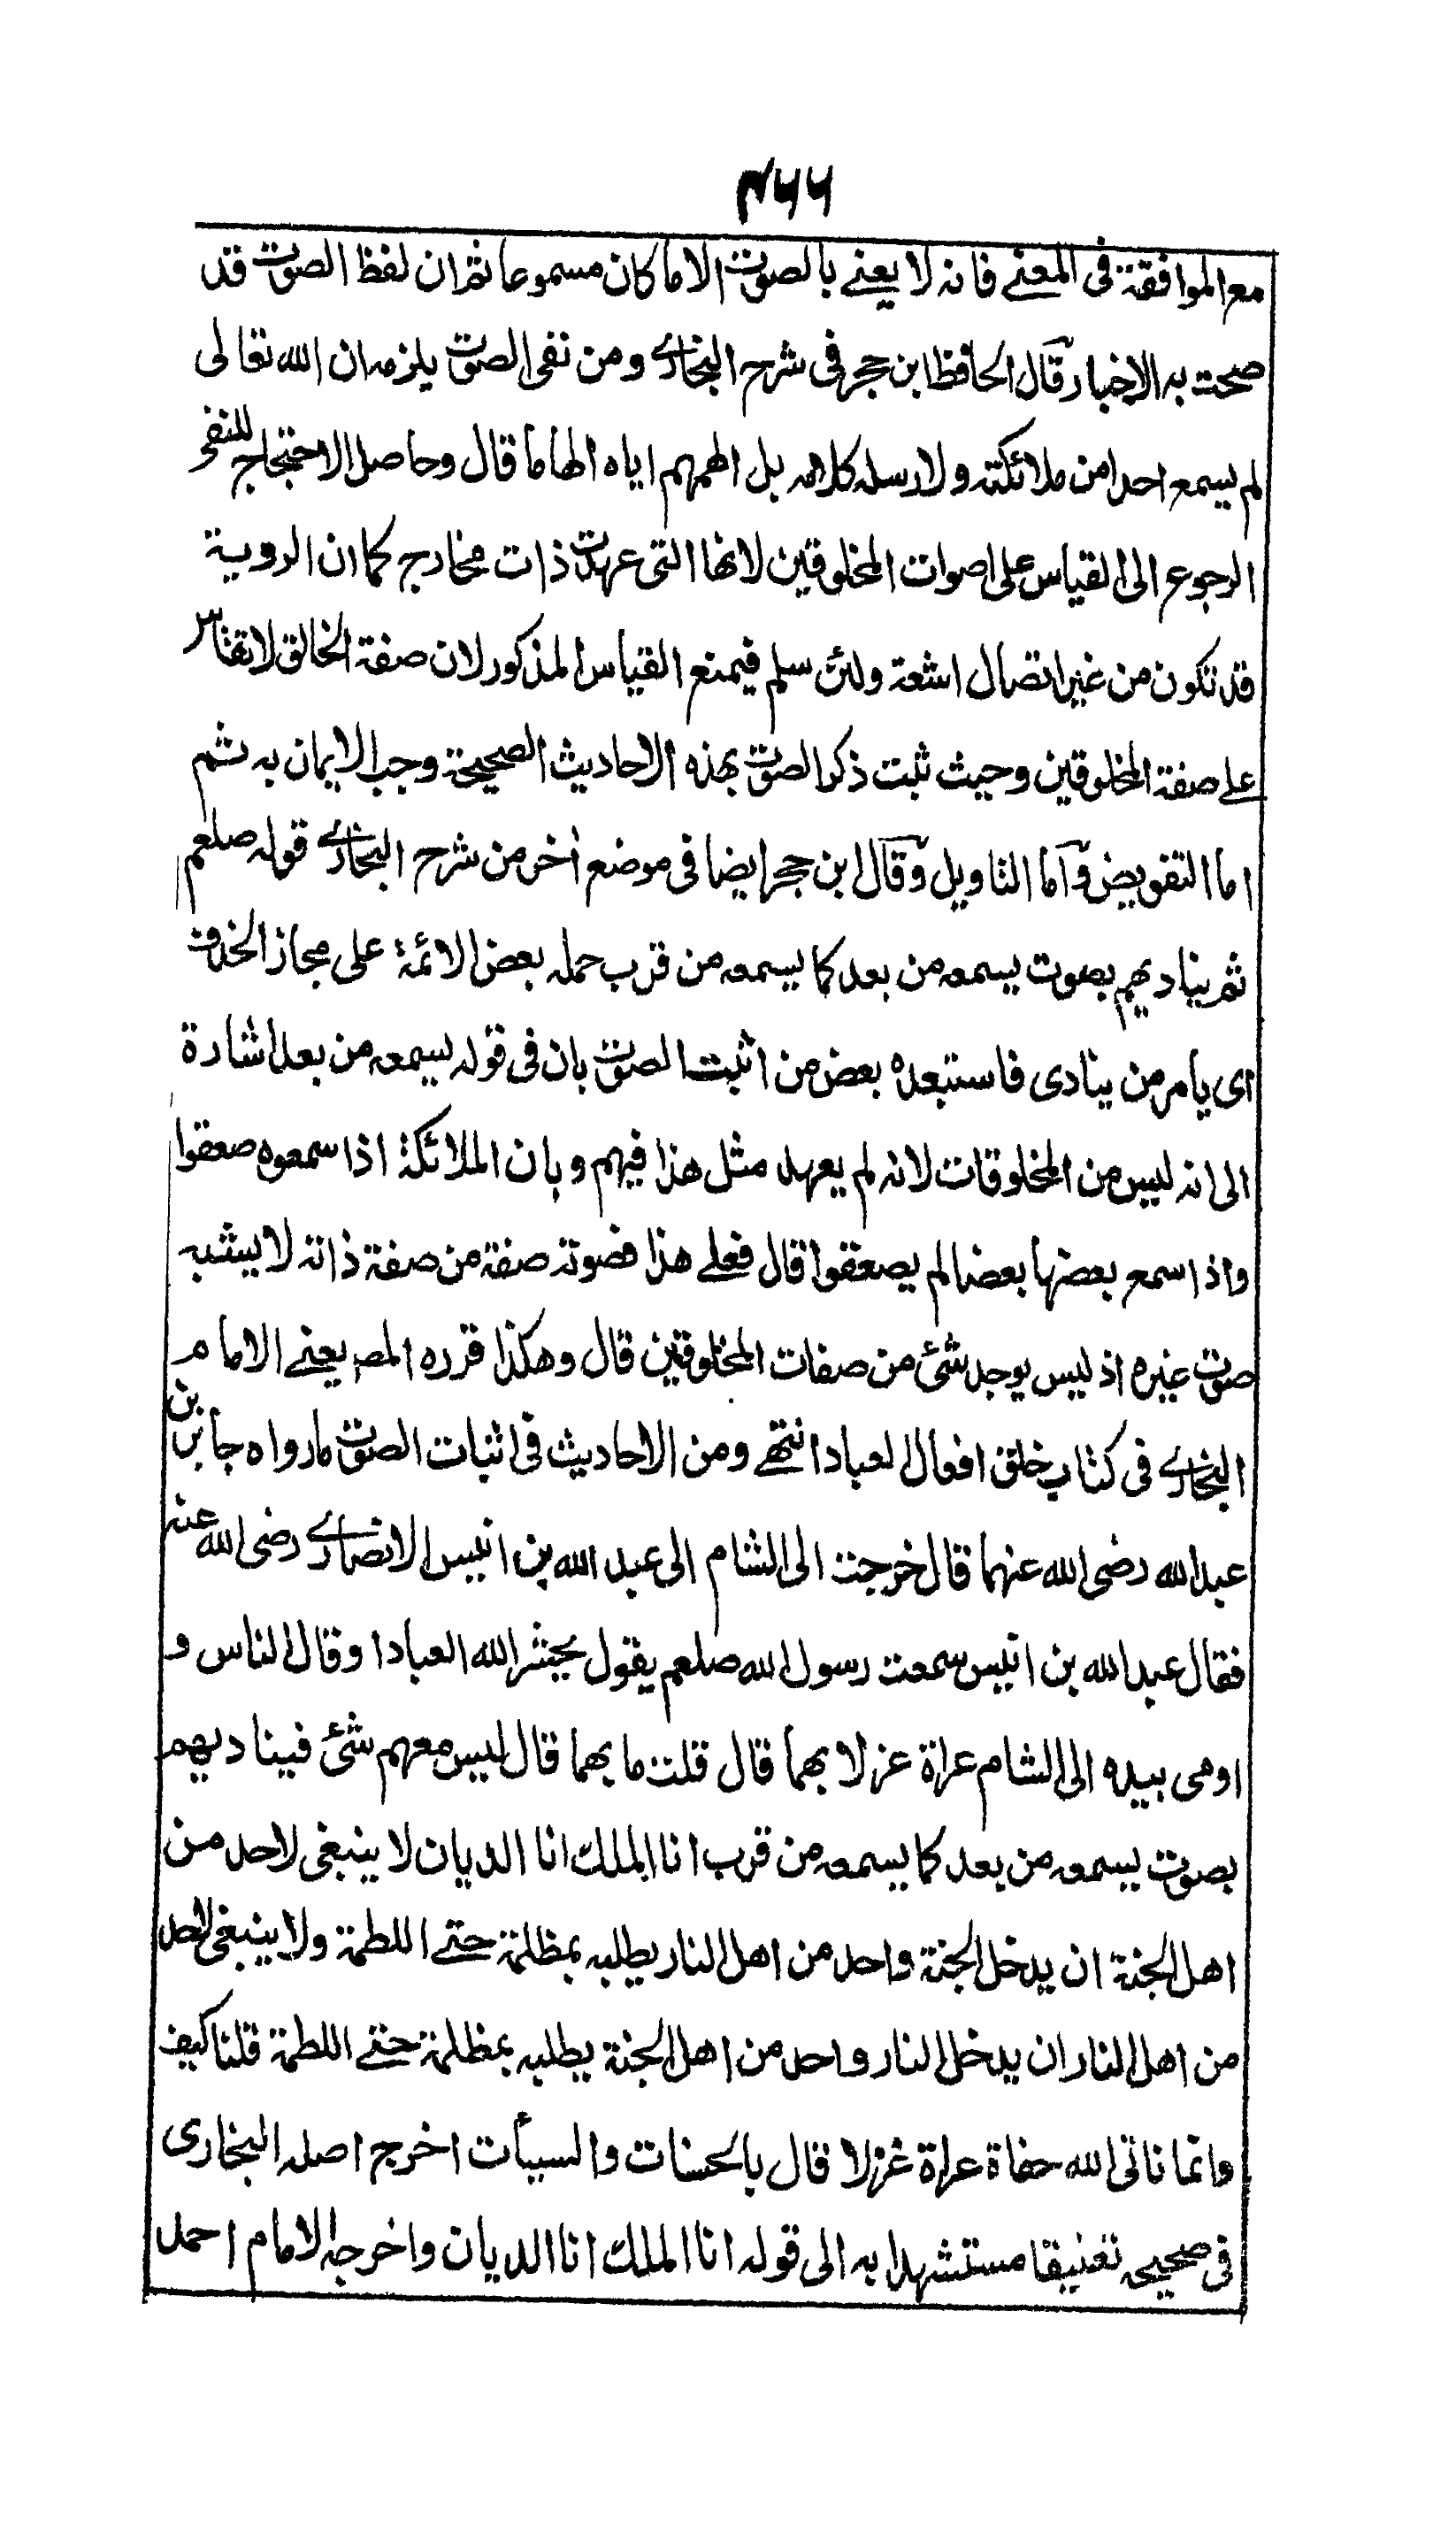 ۴۶۶
مع الموافقة فى المعنے فانه لا يعنے بالصوت الا ما كان مسموعا ثم ان لفظ الصوت قد
صحت به الاخبار قال الحافظ ابن حجر فى شرح البخارے ومن نفى الصوت يلزمه ان الله تعالى
لم يسمع احدا من ملائكته ولا رسله كلامه بل الهمهم اياه الهاما قال وحاصل الاحتجاج للنفى
الرجوع الى القياس على اصوات المخلوقين لانها التى عهدت ذات مخارج كما ان الروية
قد تكون من غير اتصال اشعة ولئن سلم فيمنع القياس المذكور لان صفة الخالق لا تقاس
علے صفة المخلوقين وحيث ثبت ذكر الصوت بهذه الاحاديث الصحيحة وجب الايمان به ثم
اما التفويض وآما التاويل وقال ابن حجر ايضا فى موضع أخر من شرح البخارے قوله صلعم
ثم يناديهم بصوت يسمعه من بعد كما يسمعه من قرب حمله بعض الائمة على مجاز الحذف
اى يامر من ينادى فاستبعده بعض من اثبت الصوت بان فى قوله يسمعه من بعد اشارة
الى انه ليس من المخلوقات لانه لم يعهد مثل هذا فيهم وبان الملائكة اذا سمعوه صعقوا
واذا سمع بعضها بعضا لم يصعقوا قال فعلے هذا فصوته صفة من صفة ذاته لا يشبه
صوت غيره اذ ليس يوجد شئ من صفات المخلوقين قال وهكذا قرره المص يعنے الامام
البخارے فى كتاب خلق افعال العباد انتهے ومن الاحاديث فى اثبات الصوت مارواه جابر بن
عبد الله رضى الله عنهما قال خرجت الى الشام الى عبد الله بن انيس الانصارے رضى الله عنه
فقال عبد الله بن انيس سمعت رسول الله صلعم يقول يحشر الله العباد ا وقال الناس و
اومى بيده الى الشام عراة غزلا بهما قال قلت ما بهما قال ليس معهم شئ فيناديهم
بصوت يسمعه من بعد كما يسمعه من قرب انا الملك انا الديان لا ينبغى لاحد من
اهل الجنة ان يدخل الجنة واحد من اهل النار يطلبه بمظلمة حتے اللطمة ولا ينبغى لاحد
من اهل النار ان يدخل النار واحد من اهل الجنة يطلبه بمظلمة حتے اللطمة قلنا كيف
وانما ناتى الله حفاة عراة غزلا قال بالحسنات والسيأت اخرج اصله البخارى
فى صحيحه تعليقا مستشهدا به الى قوله انا الملك انا الديان واخرجه الامام احمد